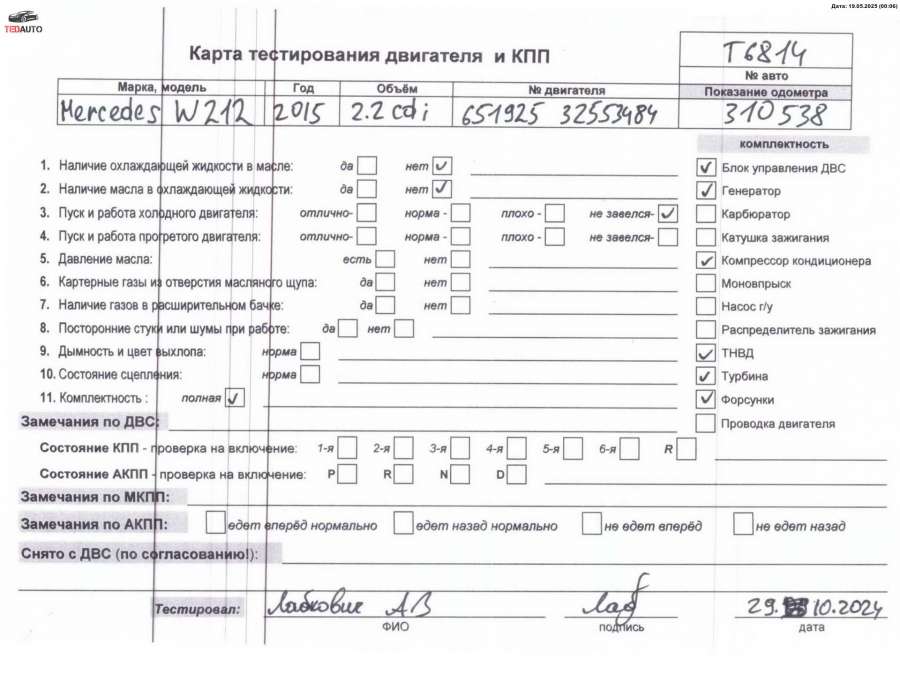 Дата: 19.05.2025 (00:06)
TEDAUTO
Карта тестирования двигателя и КПП
T6814
№ авто
Марка, модель Год Объём № двигателя Показание одометра
Mercedes W212 2015 2.2 cdi 651925 32553484 310538
комплектность
1. Наличие охлаждающей жидкости в масле: да нет ✓ ✓ Блок управления ДВС
2. Наличие масла в охлаждающей жидкости: да нет ✓ ✓ Генератор
3. Пуск и работа холодного двигателя: отлично- норма - плохо - не завелся- ✓ Карбюратор
4. Пуск и работа прогретого двигателя: отлично- норма - плохо - не завелся- Катушка зажигания
5. Давление масла: есть нет ✓ Компрессор кондиционера
6. Картерные газы из отверстия масляного щупа: да нет Моновпрыск
7. Наличие газов в расширительном бачке: да нет Насос г/у
8. Посторонние стуки или шумы при работе: да нет Распределитель зажигания
9. Дымность и цвет выхлопа: норма ✓ ТНВД
10. Состояние сцепления: норма ✓ Турбина
11. Комплектность : полная ✓ ✓ Форсунки
Замечания по ДВС: Проводка двигателя
Состояние КПП - проверка на включение: 1-я 2-я 3-я 4-я 5-я 6-я R
Состояние АКПП - проверка на включение: P R N D
Замечания по МКПП:
Замечания по АКПП: едет вперёд нормально едет назад нормально не едет вперёд не едет назад
Снято с ДВС (по согласованию!):
Тестировал: Лабкович АВ Лаб 29. 10.2024
ФИО подпись дата